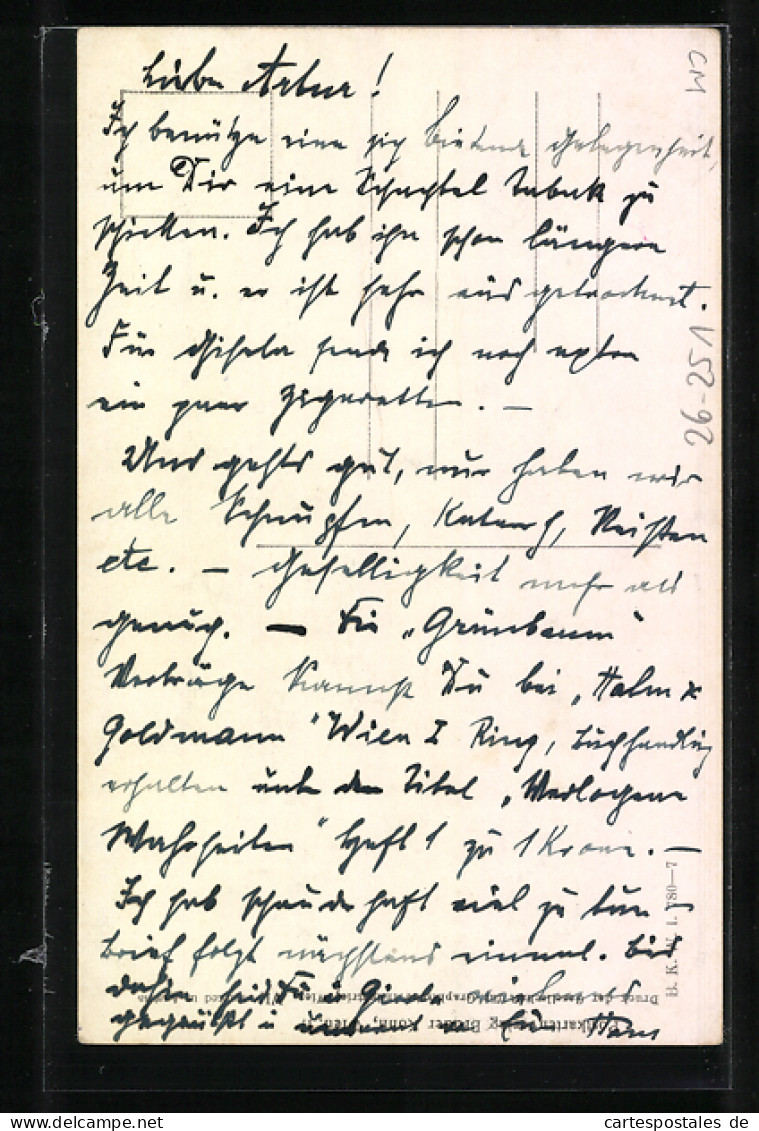 Lieber Artur!
Ich benütze eine sich bietende Gelegenheit,
um Dir eine Schachtel Tabak zu
schicken. Ich hab ihn schon längere
Zeit u. er ist sehr ausgetrocknet.
Für Gisela sende ich noch extra
ein paar Zigaretten. —
Uns gehts gut, nur haben wir
alle Schnupfen, Katarrh, Reißen
etc. — Geselligkeit mehr als
genug. — Die „Grünbaum"
Vorträge kannst Du bei „Halm &
Goldmann" Wien I Ring, Buchhandlung
erhalten unter dem Titel „Verlogene
Wahrheiten" Heft 1 zu 1 Krone. —
Ich hab schauderhaft viel zu tun –
Brief folgt nächstens einmal. Bis
dahin seid Du u Gisela
gegrüßt u von Euer Hans
CM
V52-92
B. K. W. I. 780—7
Postkartenverlag Brüder Kohn, Wien I.
cartespostales de